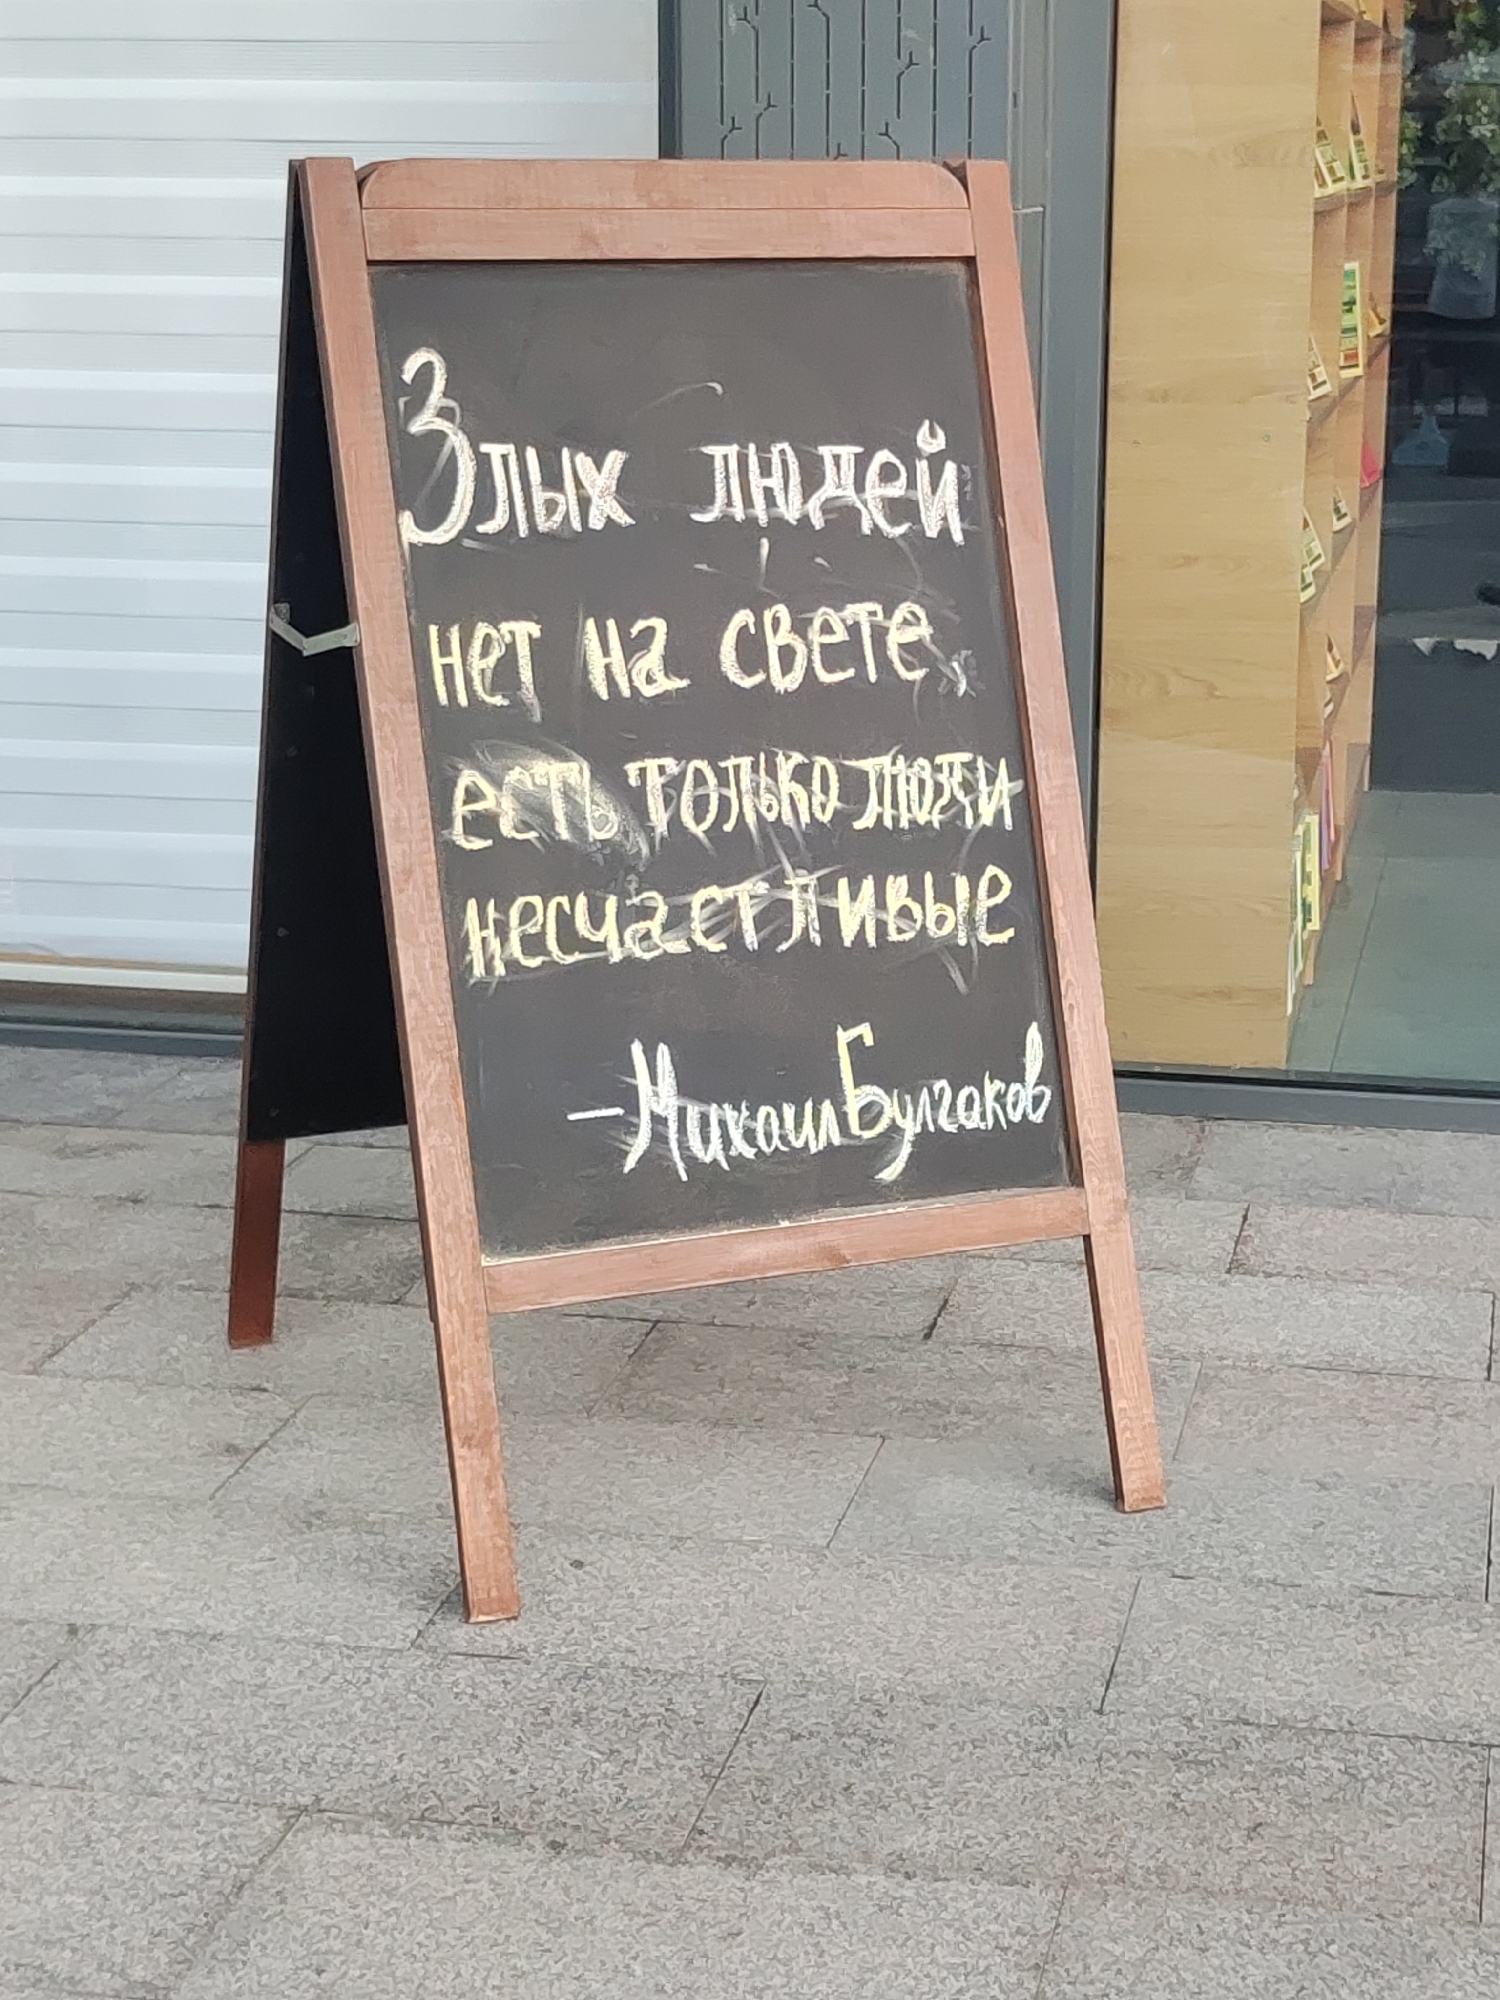 Злых людей
нет на свете,
есть только люди
несчастливые
- Михаил Булгаков